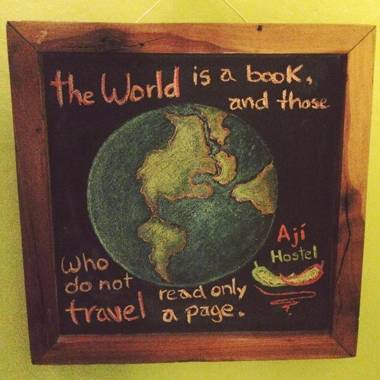 the World is a book,
and those
who
do not
travel
read only
a page.
Ají
Hostel